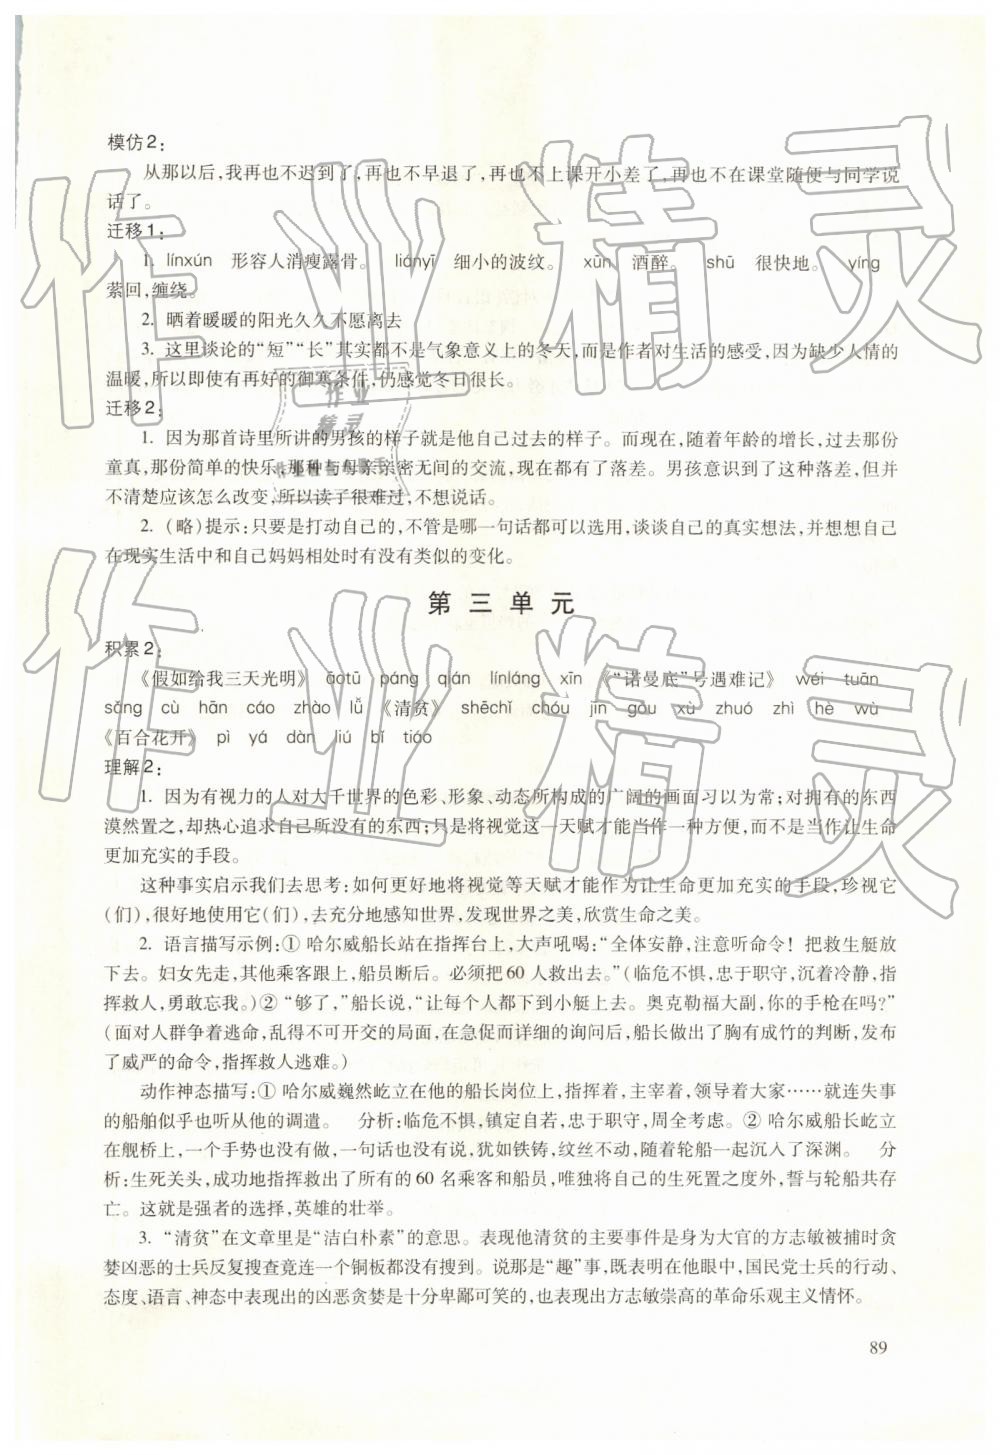 模仿2：
从那以后，我再也不迟到了，再也不早退了，再也不上课开小差了，再也不在课堂随便与同学说
话了。
迁移1：
1. línxún 形容人消瘦露骨。 liányī 细小的波纹。 xūn 酒醉。 shū 很快地。 yíng
萦回，缠绕。
2. 晒着暖暖的阳光久久不愿离去
3. 这里谈论的“短”“长”其实都不是气象意义上的冬天，而是作者对生活的感受，因为缺少人情的
温暖，所以即使有再好的御寒条件，仍感觉冬日很长。
迁移2：
1. 因为那首诗里所讲的男孩的样子就是他自己过去的样子。而现在，随着年龄的增长，过去那份
童真，那份简单的快乐，那种与母亲亲密无间的交流，现在都有了落差。男孩意识到了这种落差，但并
不清楚应该怎么改变，所以读了很难过，不想说话。
2. （略）提示：只要是打动自己的，不管是哪一句话都可以选用，谈谈自己的真实想法，并想想自己
在现实生活中和自己妈妈相处时有没有类似的变化。
第三单元
积累2：
《假如给我三天光明》 āotū páng qián línláng xīn 《“诺曼底”号遇难记》 wéi tuān
sǎng cù hān cáo zhào lǚ 《清贫》 shēchǐ chóu jīn gǒu xù zhuó zhì hè wù
《百合花开》 pì yá dàn liú bǐ tiáo
理解2：
1. 因为有视力的人对大千世界的色彩、形象、动态所构成的广阔的画面习以为常；对拥有的东西
漠然置之，却热心追求自己所没有的东西；只是将视觉这一天赋才能当作一种方便，而不是当作让生命
更加充实的手段。
这种事实启示我们去思考：如何更好地将视觉等天赋才能作为让生命更加充实的手段，珍视它
（们），很好地使用它（们），去充分地感知世界，发现世界之美，欣赏生命之美。
2. 语言描写示例：① 哈尔威船长站在指挥台上，大声吼喝：“全体安静，注意听命令！把救生艇放
下去。妇女先走，其他乘客跟上，船员断后。必须把60人救出去。”（临危不惧，忠于职守，沉着冷静，指
挥救人，勇敢忘我。）② “够了，”船长说，“让每个人都下到小艇上去。奥克勒福大副，你的手枪在吗？”
（面对人群争着逃命，乱得不可开交的局面，在急促而详细的询问后，船长做出了胸有成竹的判断，发布
了威严的命令，指挥救人逃难。）
动作神态描写：① 哈尔威巍然屹立在他的船长岗位上，指挥着，主宰着，领导着大家……就连失事
的船舶似乎也听从他的调遣。 分析：临危不惧，镇定自若，忠于职守，周全考虑。② 哈尔威船长屹立
在舰桥上，一个手势也没有做，一句话也没有说，犹如铁铸，纹丝不动，随着轮船一起沉入了深渊。 分
析：生死关头，成功地指挥救出了所有的60名乘客和船员，唯独将自己的生死置之度外，誓与轮船共存
亡。这就是强者的选择，英雄的壮举。
3. “清贫”在文章里是“洁白朴素”的意思。表现他清贫的主要事件是身为大官的方志敏被捕时贪
婪凶恶的士兵反复搜查竟连一个铜板都没有搜到。说那是“趣”事，既表明在他眼中，国民党士兵的行动、
态度、语言、神态中表现出的凶恶贪婪是十分卑鄙可笑的，也表现出方志敏崇高的革命乐观主义情怀。
89
作业精灵
作业
精灵
作业精灵